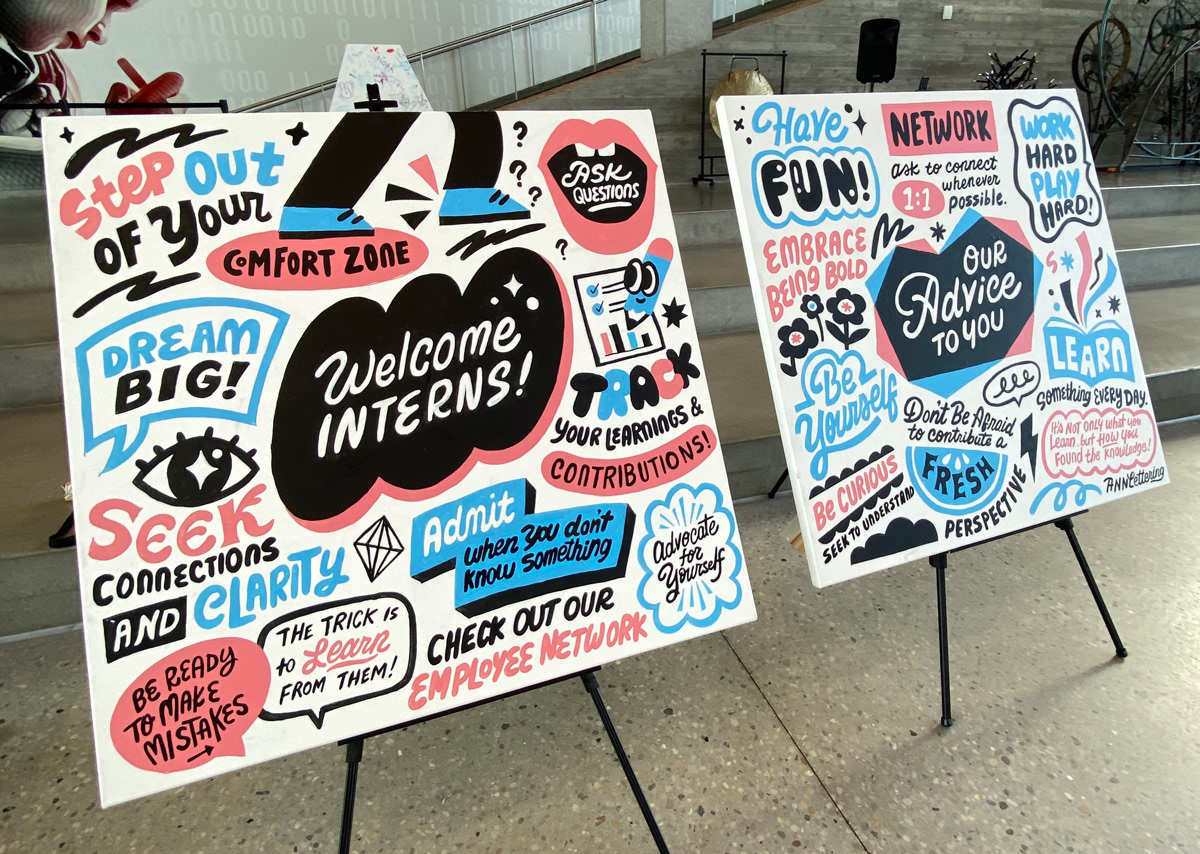 STEP OUT
OF YOUR
COMFORT ZONE
? ? ? ? ?
ASK
QUESTIONS
DREAM
BIG!
Welcome
INTERNS!
TRACK
YOUR LEARNINGS &
CONTRIBUTIONS!
SEEK
CONNECTIONS
AND CLARITY
Admit
when you don't
know something
Advocate
for
Yourself
CHECK OUT OUR
EMPLOYEE NETWORK
BE READY
TO MAKE
MISTAKES
THE TRICK IS
to Learn
FROM THEM!
Have
FUN!
NETWORK
ask to connect
1:1 whenever
possible.
WORK
HARD
PLAY
HARD!
EMBRACE
BEING BOLD
OUR
Advice
TO YOU
Be
Yourself
LEARN
something EVERY DAY.
Don't Be Afraid
to contribute a
FRESH
PERSPECTIVE
It's Not only what you
Learn, but HOW you
Found the knowledge!
Be CURIOUS
SEEK to UNDERSTAND
ANNLettering